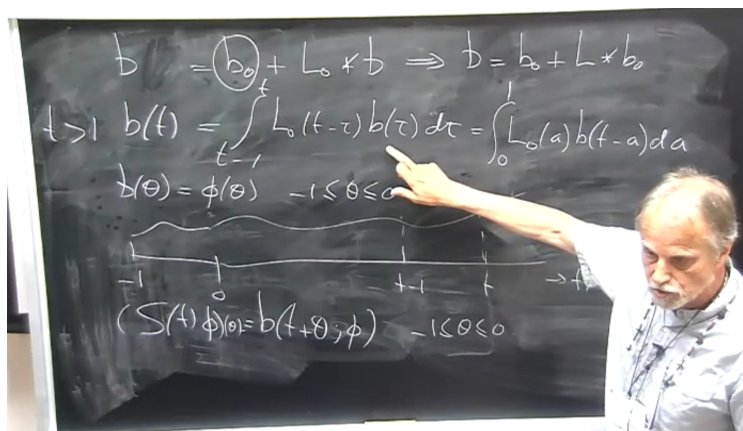 b = b₀ + L₀ * b ⇒ b = b₀ + L * b₀
t>1 b(t) = ∫_{t-1}^{t} L₀(t-τ) b(τ) dτ = ∫_0^1 L₀(a) b(t-a) da
b(θ) = φ(θ) -1≤θ≤0
-1 0 t-1 t → t
(S(t)φ)(θ) = b(t+θ;φ) -1≤θ≤0